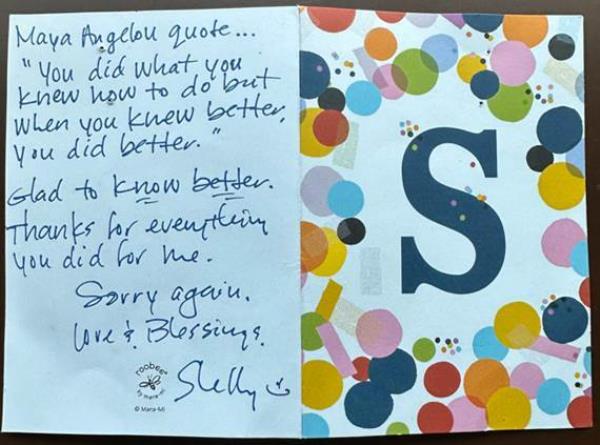 Maya Angelou quote...
"You did what you
knew how to do but
when you knew better,
you did better."
Glad to know better.
Thanks for everything
you did for me.
Sorry again.
Love & Blessings.
Shelly
roobee®
by mara-mi
© Mara-Mi
S